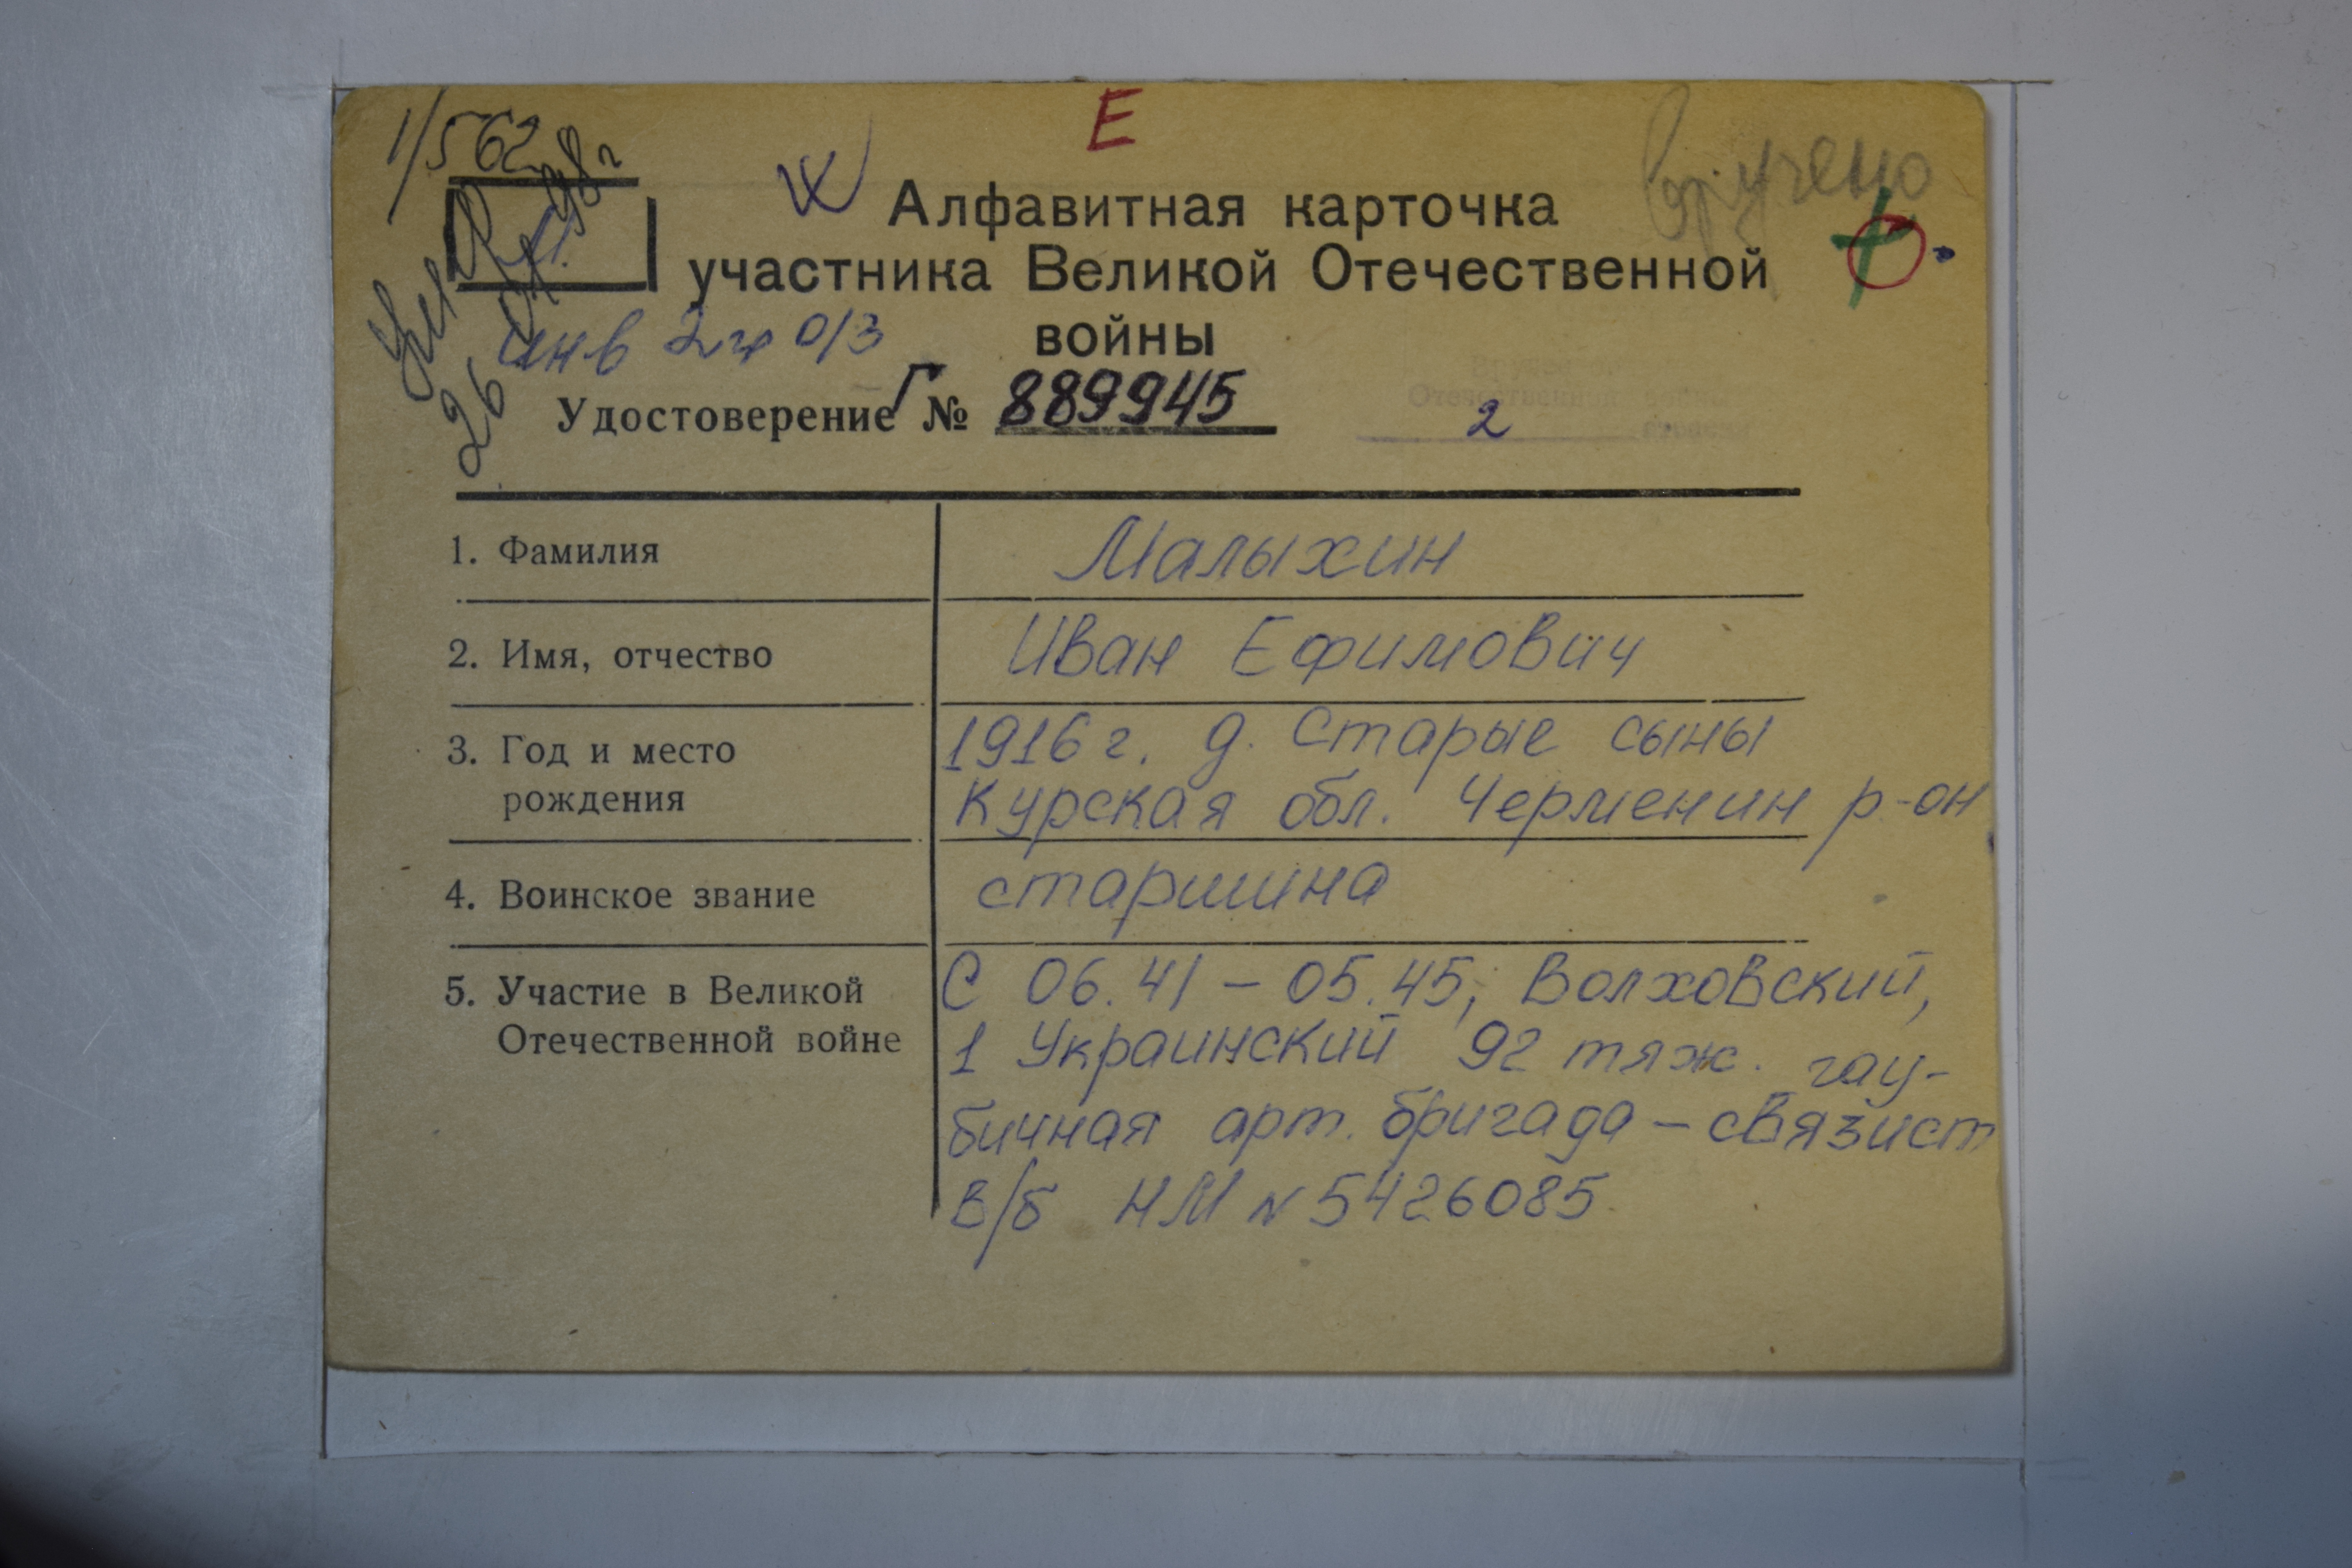 1/562
Е
вручено
Ж
Алфавитная карточка
участника Великой Отечественной
войны
26 98г
инв 2 гр о/з
Удостоверение Г № 889945
Отечественной войны
2
1. Фамилия Малыхин
2. Имя, отчество Иван Ефимович
3. Год и место 1916 г. д. Старые сыны
рождения Курская обл. Черменин р-он
4. Воинское звание старшина
5. Участие в Великой С 06.41 – 05.45, Волховский,
Отечественной войне 1 Украинский 92 тяж. гау-
бичная арт. бригада – связист
В/б НМ N 5426085